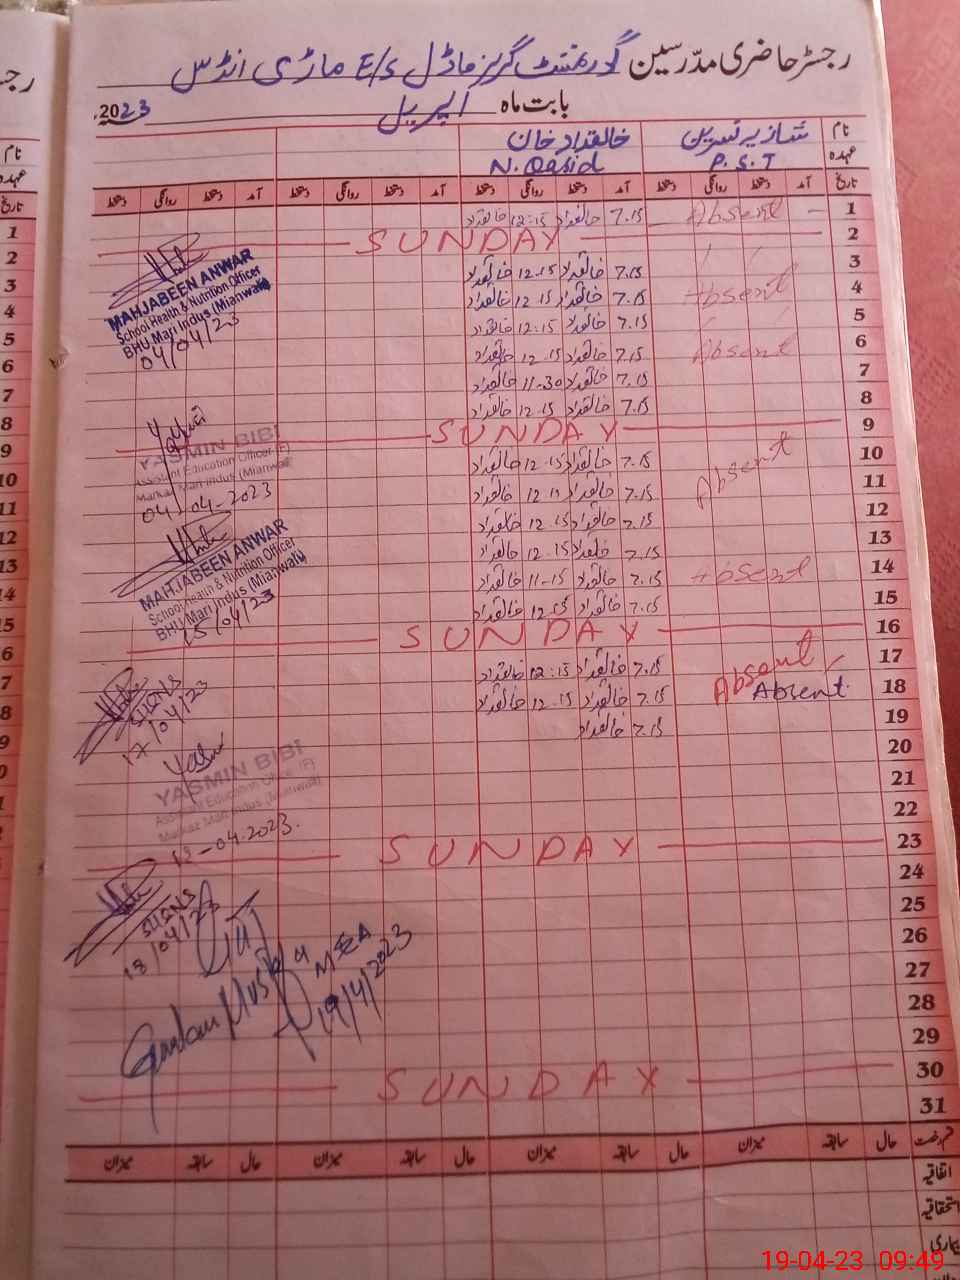 رجسٹر حاضری مدرسین گورنمنٹ گرلز ماڈل E/S ماڑی انڈس
بابت ماہ اپریل 2023ء
نام شازیہ نسرین خالقداد خان
عہدہ P.S.T N. Qasid
تاریخ آمد دستخط روانگی دستخط آمد دستخط روانگی دستخط آمد دستخط روانگی دستخط آمد دستخط روانگی دستخط
1 Absent 7.15 خالقداد 12:15 خالقداد
2 SUNDAY
3 7.15 خالقداد 12.15 خالقداد
4 Absent 7.15 خالقداد 12.15 خالقداد
5 7.15 خالقداد 12:15 خالقداد
6 Absent 7.15 خالقداد 12.15 خالقداد
7 7.15 خالقداد 11-30 خالقداد
8 7.15 خالقداد 12.15 خالقداد
9 SUNDAY
10 Absent 7.15 خالقداد 12.15 خالقداد
11 7.15 خالقداد خالقداد
12 7.15 خالقداد 12.15 خالقداد
13 7.15 خالقداد 12.15 خالقداد
14 Absent 7.15 خالقداد 11-15 خالقداد
15 7.15 خالقداد 12.15 خالقداد
16 SUNDAY
17 Absent 7.15 خالقداد 12:15 خالقداد
18 Absent 7.15 خالقداد 12.15 خالقداد
19 7.15 خالقداد
20
21
22
23 SUNDAY
24
25
26
27
28
29
30 SUNDAY
31
MAHJABEEN ANWAR
School Health & Nutrition Officer
BHU Mari Indus (Mianwali)
04/04/23
YASMIN BIBI
Assistant Education Officer (F)
Markaz Mari Indus (Mianwali)
04-04-2023
MAHJABEEN ANWAR
School Health & Nutrition Officer
BHU Mari Indus (Mianwali)
15/04/23
SH&NS
17/04/23
YASMIN BIBI
Assistant Education Officer (F)
Markaz Mari Indus (Mianwali)
18-04-2023.
SH&NS
18/04/23
Ghulam Mustafa
MEA
19/4/2023
قسم رخصت حال سابقہ میزان حال سابقہ میزان حال سابقہ میزان حال سابقہ میزان
اتفاقیہ
استحقاقیہ
بیماری
19-04-23 09:49